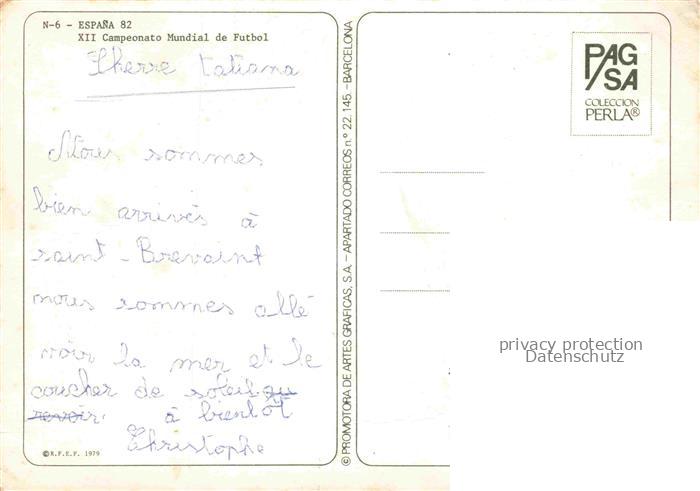 N-6 - ESPAÑA 82
XII Campeonato Mundial de Futbol
Cherre tatiana
Nous sommes
bien arrivés à
saint-Brevaint
nous sommes allé
voir la mer et le
coucher de soleil au
revoir. à bientôt
Christophe
©R.F.E.F. 1979
© PROMOTORA DE ARTES GRAFICAS, S.A. - APARTADO CORREOS n.º 22.145. - BARCELONA
PAG/SA
COLECCION
PERLA®
privacy protection
Datenschutz